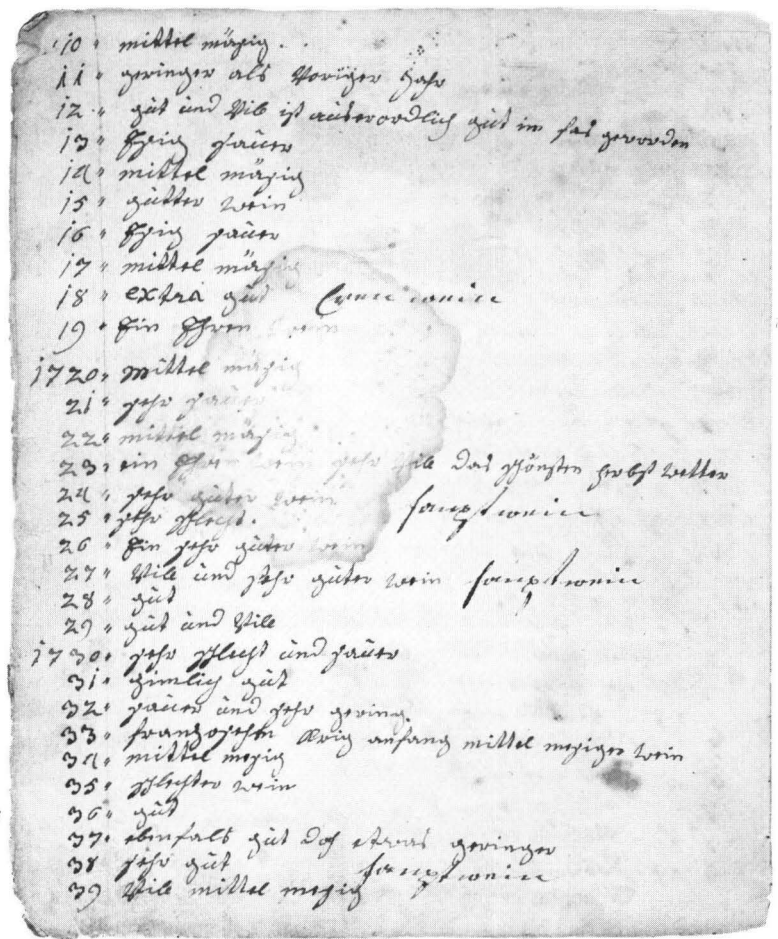 10 " mittel mäsig.
11 " geringer als Voriger Jahr
12 " güt ünd Vill ist aüserordlich güt im fas geworden
13 " Esig saüer
14 " mittel mäsig
15 " gütter wein
16 " Esig saüer
17 " mittel mäsig
18 " extra güt Ehren wein
19 " Ein Ehren wein
1720 " Mittel mäsig
21 " sehr saüer
22 " mittel mäsig
23 " ein Ehren wein sehr Vill das schönsten herbst wetter
24 " sehr güter wein hauptwein
25 " sehr schlecht.
26 " Ein sehr güter wein
27 " Vill ünd sehr güter wein hauptwein
28 " güt
29 " güt ünd Vill
1730 " sehr schlecht ünd saüer
31 " zimlich güt
32 " saüer ünd sehr gering.
33 " französchen Krig anfang mittel mesiger wein
34 " mittel mesig
35 " schlechter wein
36 " güt
37 " ebenfals güt doch etwas geringer
38 " sehr güt hauptwein
39 Vill mittel mesig